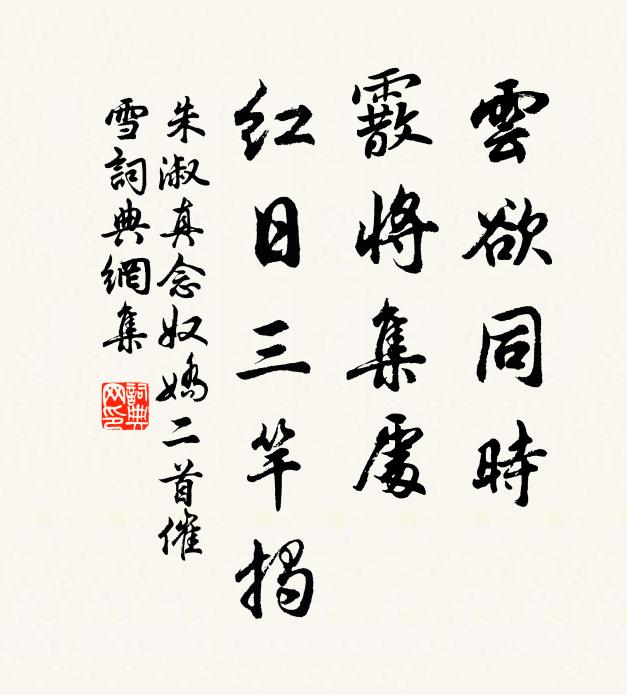 雲欲同時
霰將集處
紅日三竿揭
朱淑真念奴嬌二首催
雪詞典網集
詞典網印